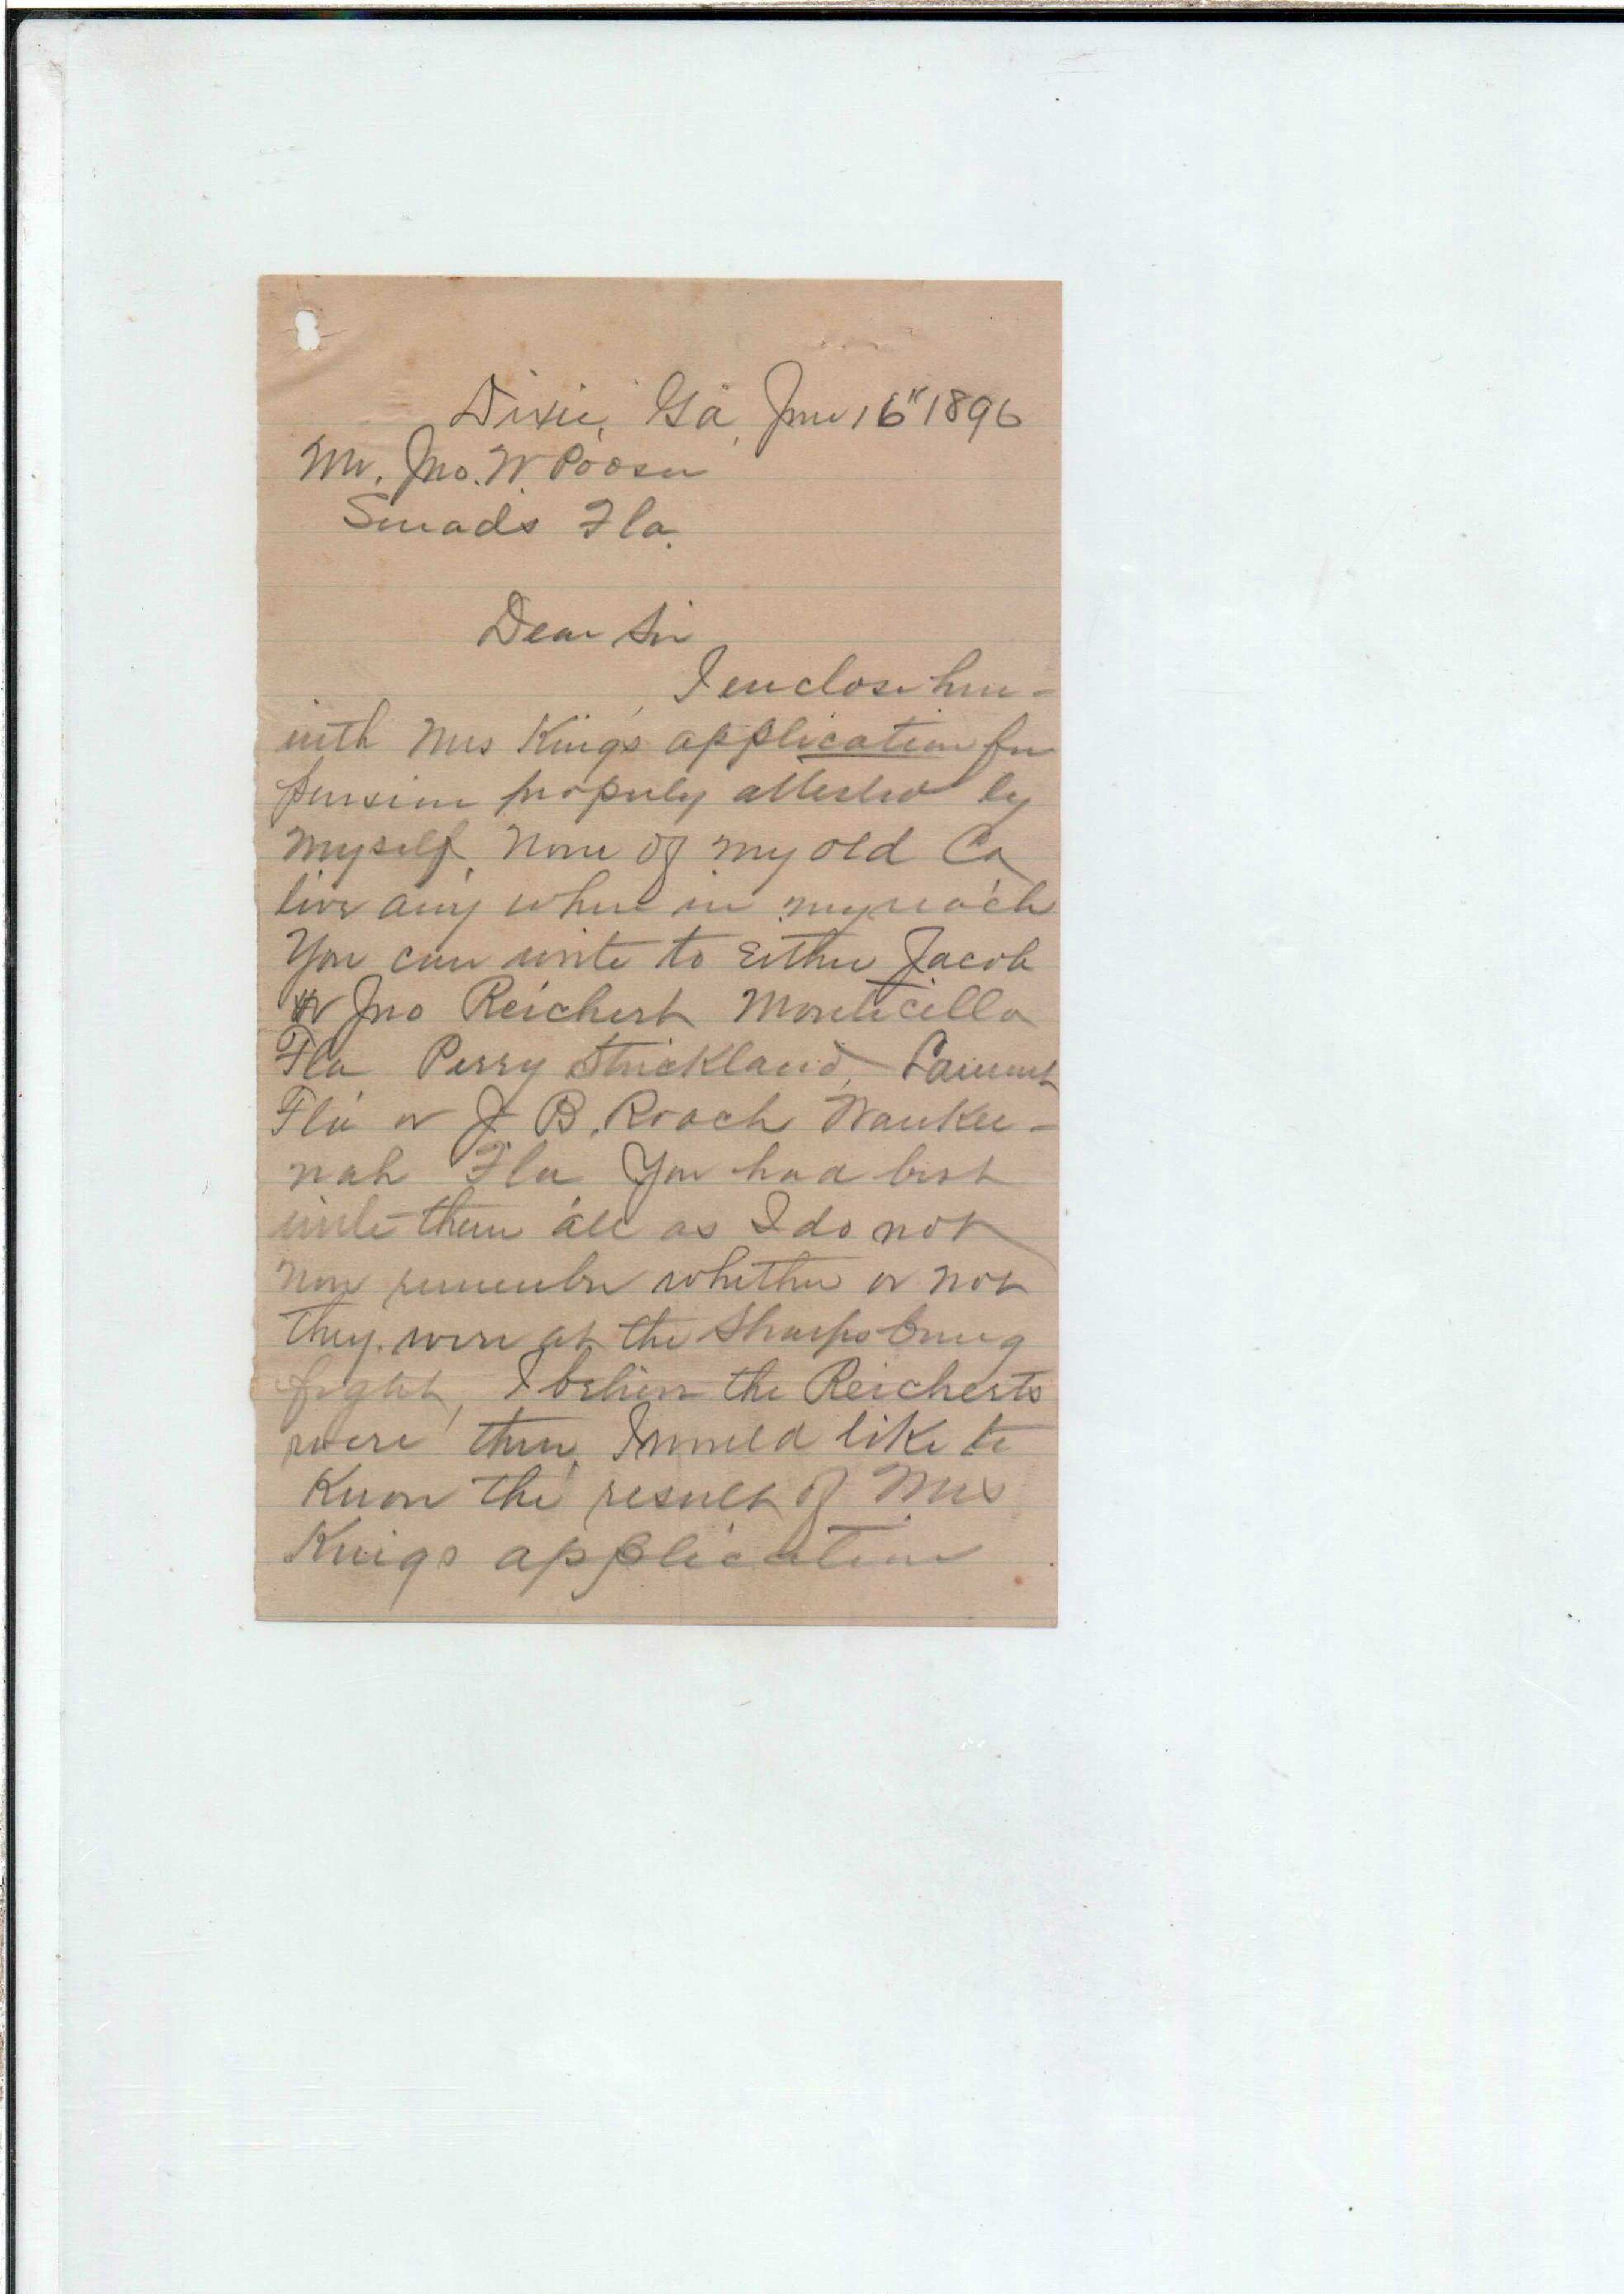 Dixie, Ga, June 16" 1896
Mr. Jno. W. Pooser
Sneads Fla.
Dear Sir
I enclose here-
with Mrs Kings application for
pension properly attested by
myself. None of my old Co
live any where in my reach
You can write to Either Jacob
or Jno Reichert Monticello
Fla Perry Strickland, Lamont
Fla or J B. Roach Waukee-
nah Fla You had best
write them all as I do not
now remember whether or not
they were at the Sharpsburg
fight, I believe the Reicherts
were there. I would like to
Know the result of Mrs
Kings application